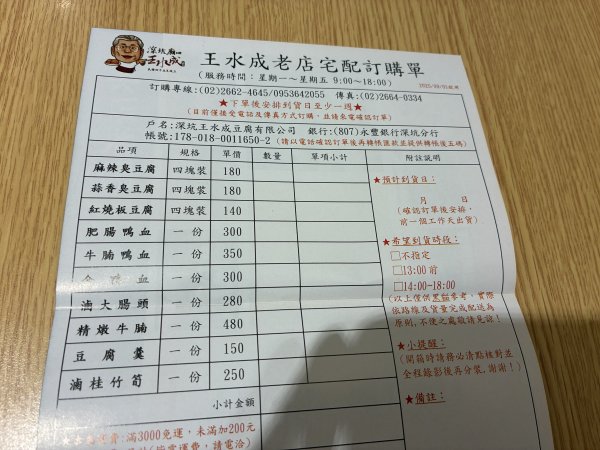 深坑廟口
王水成
王水成老店宅配訂購單
(服務時間：星期一～星期五 9:00~18:00)
訂購專線:(02)2662-4645/0953642055 傳真:(02)2664-0334
★下單後安排到貨日至少一週★
(目前僅接受電話及傳真方式訂購，並請來電確認訂單)
戶名:深坑王水成豆腐有限公司 銀行:(807)永豐銀行深坑分行
帳號:178-018-0011650-2 (請以電話確認訂單後再轉帳匯款並提供轉帳後五碼)
品項 規格 單價 數量 單項小計 附註說明
麻辣臭豆腐 四塊裝 180
蒜香臭豆腐 四塊裝 180
紅燒板豆腐 四塊裝 140
肥腸鴨血 一份 300
牛腩鴨血 一份 350
鴨血 一份 300
滷大腸頭 一份 280
精燉牛腩 一份 480
豆腐羹 一份 150
滷桂竹筍 一份 250
小計金額
★預計到貨日：
月 日
(確認訂單後安排，
前一個工作天出貨)
★希望到貨時段：
□不指定
□13:00前
□14:00-18:00
(以上僅供黑貓參考，實際
依路線及貨量完成配送為
原則,不便之處敬請見諒！
★小提醒：
(開箱時請務必清點核對並
全程錄影後再分裝,謝謝！)
★備註：
費:滿3000免運，未滿加200元
運費，請電洽)